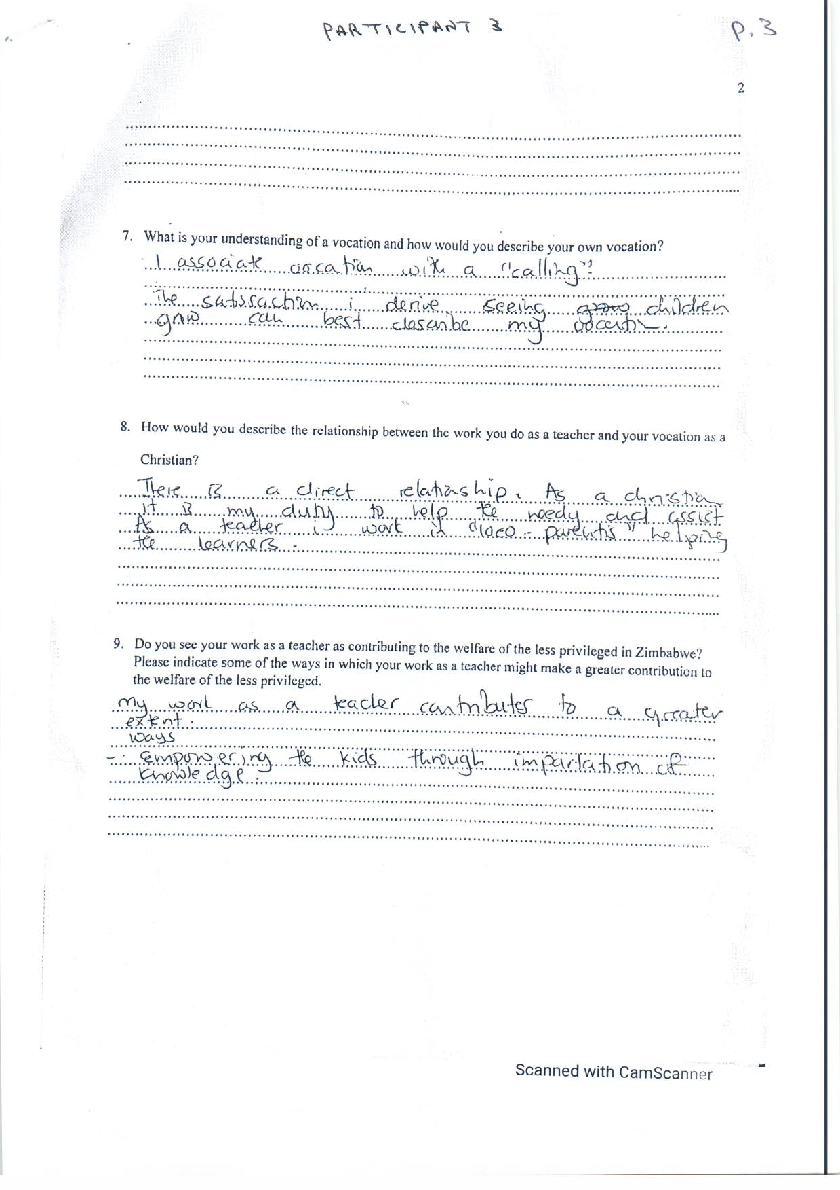 PARTICIPANT 3
P.3
2
7. What is your understanding of a vocation and how would you describe your own vocation?
I associate vocation with a "calling"
The satisfaction i derive seeing children
grow can best describe my vocation.
8. How would you describe the relationship between the work you do as a teacher and your vocation as a
Christian?
There is a direct relationship. As a christian
it is my duty to help the needy and assist
As a teacher i work in "loco-parentis" helping
the learners.
9. Do you see your work as a teacher as contributing to the welfare of the less privileged in Zimbabwe?
Please indicate some of the ways in which your work as a teacher might make a greater contribution to
the welfare of the less privileged.
My work as a teacher contributes to a greater
extent.
Ways
- Empowering the kids through impartation of
knowledge.
Scanned with CamScanner